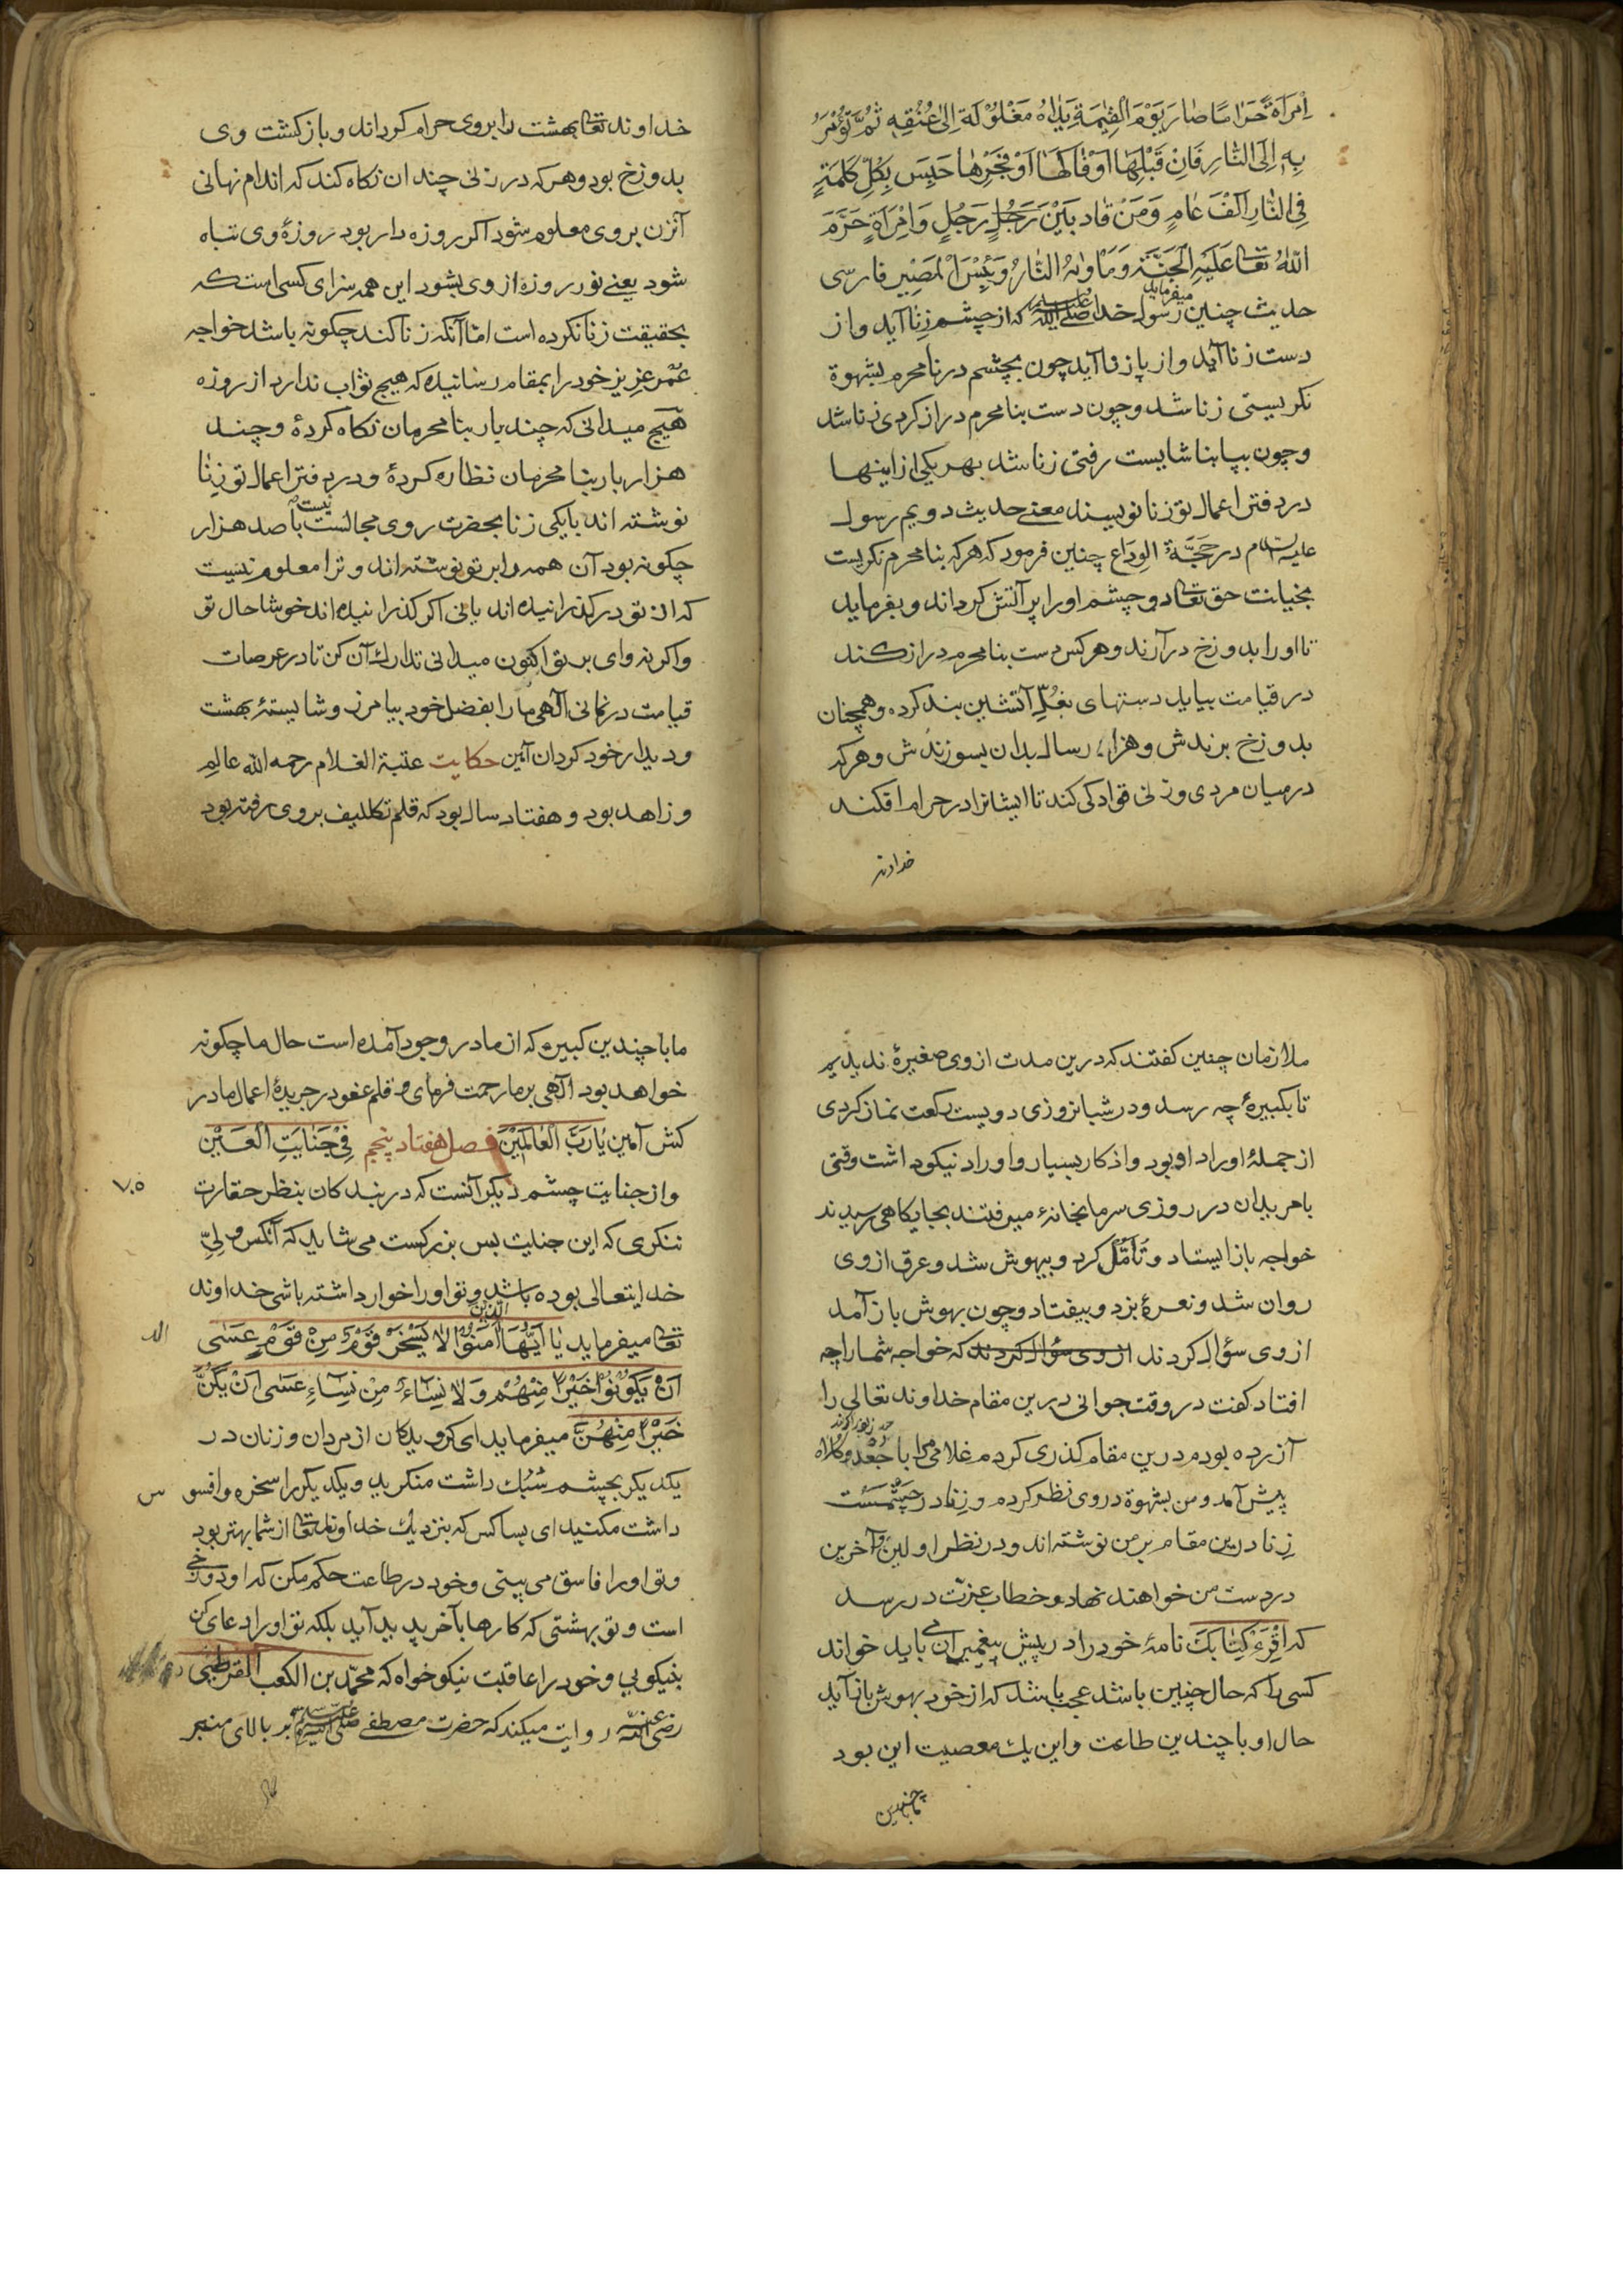 اِمْرَاَةً حَرَامًا صَارَ يَوْمَ الْقِيٰمَةِ يَدَاهُ مَغْلُوْلَة اِلىٰ عُنْقِهِ ثُمَّ تُؤْمَرُ
بِهِ اِلَى النَّارِ فَاِنْ قَبْلِهَا اَوْ فَاكَهَا اَوْ فَجَرِهَا حَبِسَ بِكُلِّ كَلِمَةٍ
فِى النَّارِ اَلْفَ عَامٍ وَمَنْ قَاد بَيْنَ رَجُلٍ رَجُلٍ وَامْرَاَةٍ حَرَّمَ
اللّٰهُ تعا عَلَيْهِ الْجَنَّة وَمَاْوٰىهُ النَّارُ وَبِئْسَ الْمَصِيْر فارسى
حديث چنين ميفرمايد رسول خدا صلى الله عليه وسلم كه از چشم زنا آيد و از
دست زنا آيد و از پا زنا آيد چون بچشم در نا محرم بشهوة
نكريستى زنا شد و چون دست بنا محرم دراز كردى زنا شد
و چون بپا بنا شايست رفتى زنا شد بهر يكى از اينها
در دفتر اعمال تو زنا نويسند معنى حديث دويم رسول
عليه السلام در حَجَّةُ الوِدَاع چنين فرمود كه هر كه بنا محرم نكريست
بخيانت حق تعا دو چشم او را پر آتش كرداند و بفرمايد
تا او را بدوزخ در آرند و هر كس دست بنا محرم دراز كند
در قيامت بيايد دستهاى بغُلِّ آتشين بند كرده و همچنان
بدوزخ برندش و هزار سال بدان بسوزندش و هر كه
در ميان مردى و زنى قوادكى كند تا ايشانرا در حرام افكند
خداوند
خداوند تعا بهشت را بروى حرام كرداند و بازكشت وى
بدوزخ بود و هر كه در زنى چندان نكاه كند كه اندام نهانى
آنزن بروى معلوم شود اكر روزه دار بود روزهٔ وى تباه
شود يعنے نور روزه از وى بشود اين همه سزاى كسى است كه
بحقيقت زنا نكرده است امّا آنكه زنا كند چكونه باشد خواجه
عُمْر عزيز خود را بمقام رسانيده كه هيچ ثواب ندارد از روزه
هيچ ميدانى كه چند بار بنا محرمان نكاه كردهٔ و چند
هزار بار بنا محرمان نظاره كردهٔ و در دفتر اعمال تو زِنَا
نوشته اند با يكى زنا بحضرت روى مجالست نيست با صد هزار
چكونه بود آن همه را بر تو نوشته اند و ترا معلوم نيست
كه از تو در كذرانيده اند يا نى اكر كذرانيده اند خوشا حال تو
و اكر نه واى بر تو اكنون ميدانى تدارك آن كن تا در عرصات
قيامت در نمانى آلهى ما را بفضل خود بيامرز و شايستهٔ بهشت
و ديدار خود كردان آمين حكايت عتبة الغلام رحمه الله عالم
و زاهد بود و هفتاد سال بود كه قلم تكليف بروى رفته بود
ملازمان چنين كفتند كه درين مدت از وى صغيرهٔ نديديم
تا بكبيرهٔ چه رسد و در شبانروزى دويست ركعت نماز كردى
از جملهٔ اوراد او بود و اذكار بسيار و اوراد نيكو داشت وقتى
با مريدان در روزى سرما بخانهٔ ميرفتند بجايكاهى رسيدند
خواجه باز ايستاد و تَأَمُّل كرد و بيهوش شد و عرق از وى
روان شد و نعرهٔ بزد و بيفتاد و چون بهوش باز آمد
از وى سؤال كردند از وى سؤال كردند كه خواجه شما را چه
افتاد كفت در وقت جوانى درين مقام خداوند تعالى را
آزرده بودم درين مقام كذرى كردم غلامى مرا با جُعْد و كلاه
پيش آمد و من بشهوة در وى نظر كردم و زنا در چشمست
زِنا درين مقام بر من نوشته اند و در نظر اولين و آخرين
در دست من خواهند نهاد و خطاب عزّت در رسد
كه اِقْرَءْ كِتَابَكَ نامهٔ خود را در پيش پيغمبران مى بايد خواند
كسى را كه حال چنين باشد عجب باشد كه از خود بهوش باز آيد
حال او با چندين طاعت و اين يك معصيت اين بود
ما با چندين
ما با چندين كبيره كه از ما در وجود آمده است حال ما چكونه
خواهد بود آلهى بر ما رحمت فرماى و قلم عفو در جريدهٔ اعمال ما در
كش آمين يَارَبَّ الْعَالَمِيْنَ فصل هفتاد پنجم فِى جَنَايَتِ الْعَيْنِ
و از جنايت چشم ديكر آنست كه در بندكان بنظر حقارت
ننكرى كه اين جنايت بس بزركست مى شايد كه آنكس ولِىِّ
٧٥
خدايتعالى بوده باشد و تو او را خوار داشته باشى خداوند
تعا ميفرمايد يَا اَيُّهَا الَّذِيْنَ آمَنُوْا لَا يَسْخَرْ قَوْمٌ مِنْ قَوْمٍ عَسَى
اَنْ يَكُوْنُوْا خَيْرًا مِنْهُمْ وَلَا نِسَآءٌ مِنْ نِسَآءٍ عَسَى اَنْ يَكُنَّ
خَيْرًا مِنْهُنَّ ميفرمايد اى كرويدكان از مردان و زنان در
يكديكر بچشم سُبُك داشت منكريد و يكديكر را سخره و افسوس
داشت مكنيد اى بسا كس كه بنزديك خداوند تعا از شما بهتر بود
و تو او را فاسق مى بينى و خود در طاعت حكم مكن كه او دوزخى
است و تو بهشتى كه كارها بآخر پديد آيد بلكه تو او را دعاى كن
بنيكويى و خود را عاقبت نيكو خواه كه محمّد بن الكعب القرطبى
رضى الله عنه روايت ميكند كه حضرت مصطفى صلى الله عليه وسلم بر بالاى منبر